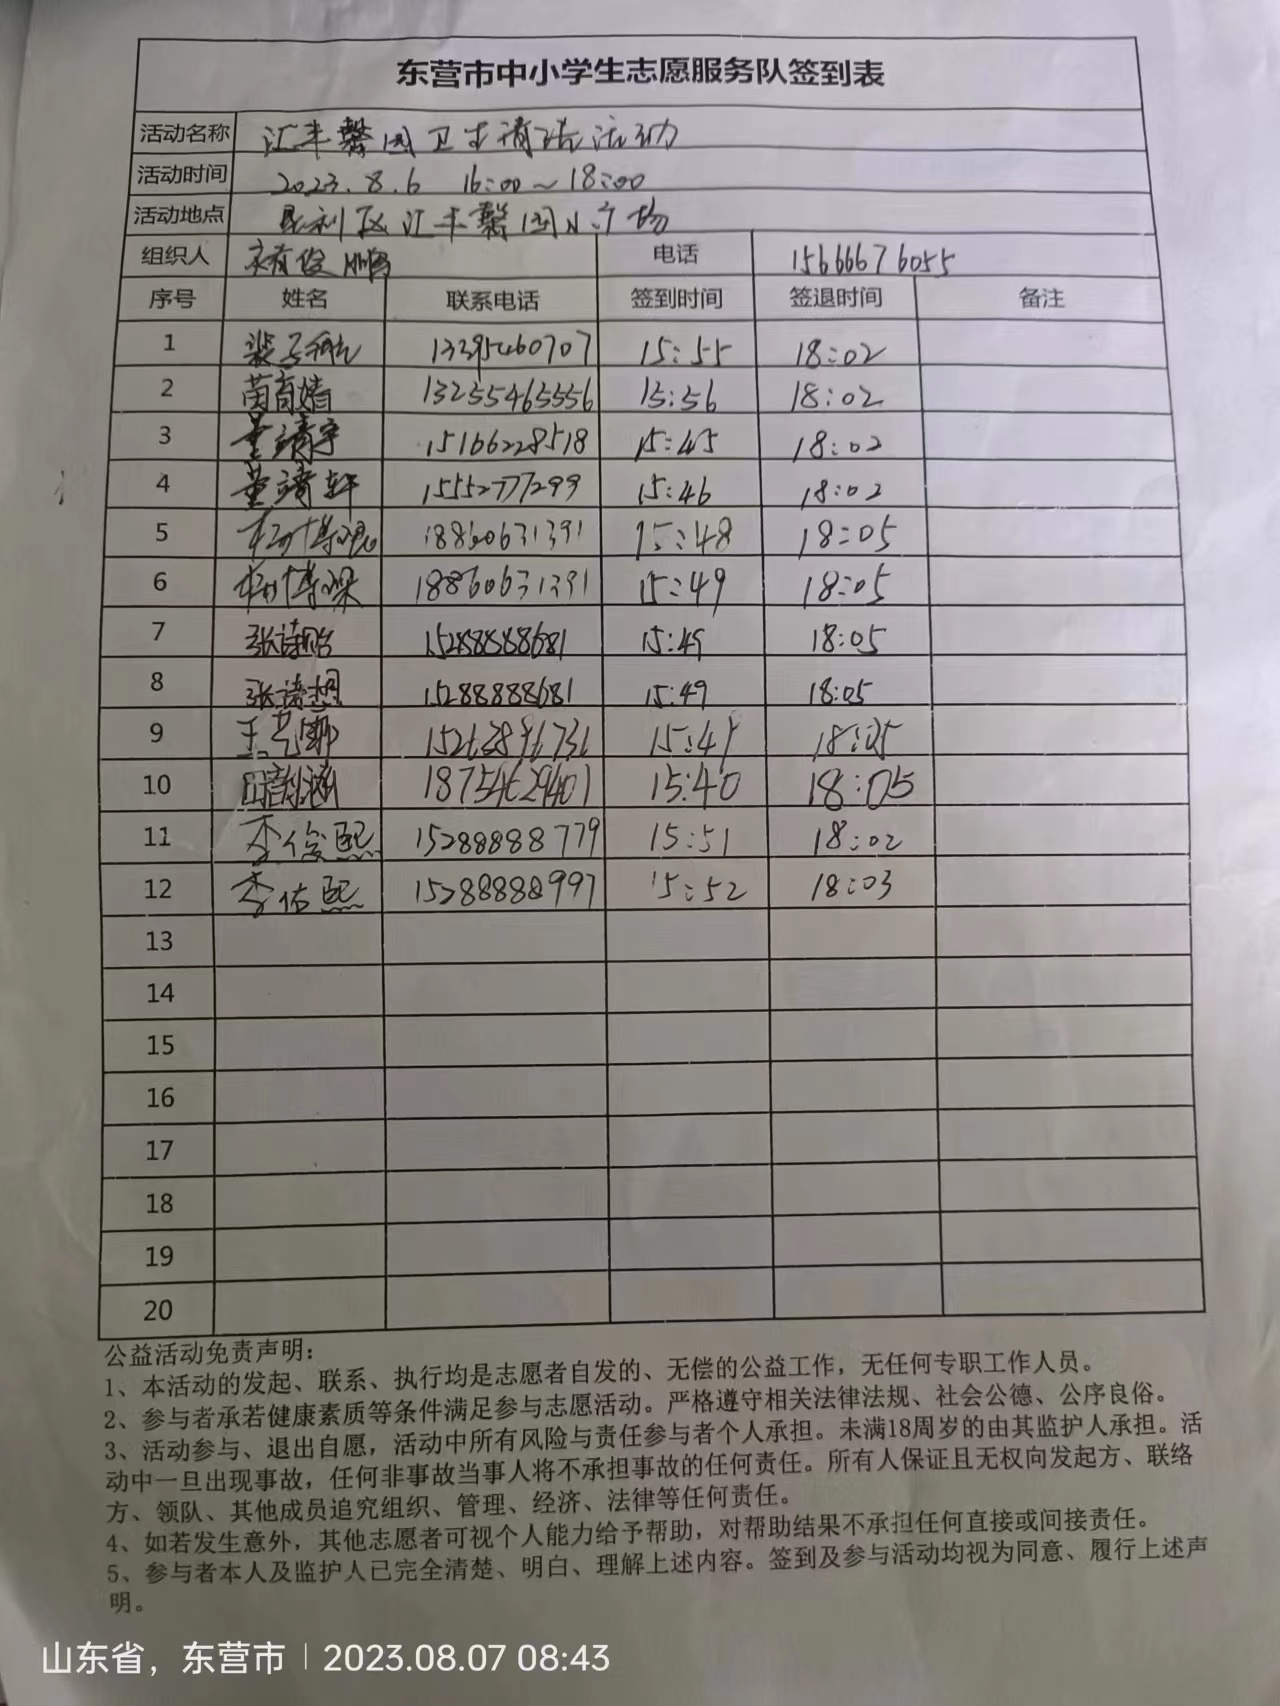 东营市中小学生志愿服务队签到表
活动名称 汇丰馨园卫生清洁活动
活动时间 2023.8.6 16:00~18:00
活动地点 垦利区汇丰馨园小广场
组织人 电话 15666676055
序号 姓名 联系电话 签到时间 签退时间 备注
1 裴子航 13395460707 15:55 18:02
2 苗育婧 13255465556 15:56 18:02
3 董靖宇 15166228518 15:45 18:02
4 董靖轩 15552777299 15:46 18:02
5 18860631391 15:48 18:05
6 18860631391 15:49 18:05
7 张诗贻 15288888681 15:49 18:05
8 张诗想 15288888681 15:49 18:05
9 18:05
10 18754629401 15:40 18:05
11 李俊熙 15288888779 15:51 18:02
12 李佑熙 15288888997 15:52 18:03
13
14
15
16
17
18
19
20
公益活动免责声明：
1、本活动的发起、联系、执行均是志愿者自发的、无偿的公益工作，无任何专职工作人员。
2、参与者承若健康素质等条件满足参与志愿活动。严格遵守相关法律法规、社会公德、公序良俗。
3、活动参与、退出自愿，活动中所有风险与责任参与者个人承担。未满18周岁的由其监护人承担。活
动中一旦出现事故，任何非事故当事人将不承担事故的任何责任。所有人保证且无权向发起方、联络
方、领队、其他成员追究组织、管理、经济、法律等任何责任。
4、如若发生意外，其他志愿者可视个人能力给予帮助，对帮助结果不承担任何直接或间接责任。
5、参与者本人及监护人已完全清楚、明白、理解上述内容。签到及参与活动均视为同意、履行上述声
明。
山东省，东营市 | 2023.08.07 08:43